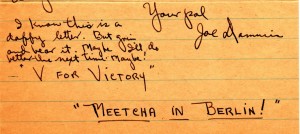 I know this is a
daffy letter. But grin
and bear it. Maybe I'll do
better the next time. Maybe!
Your pal
Joe
— "V FOR VICTORY"
"MEETCHA IN BERLIN!"